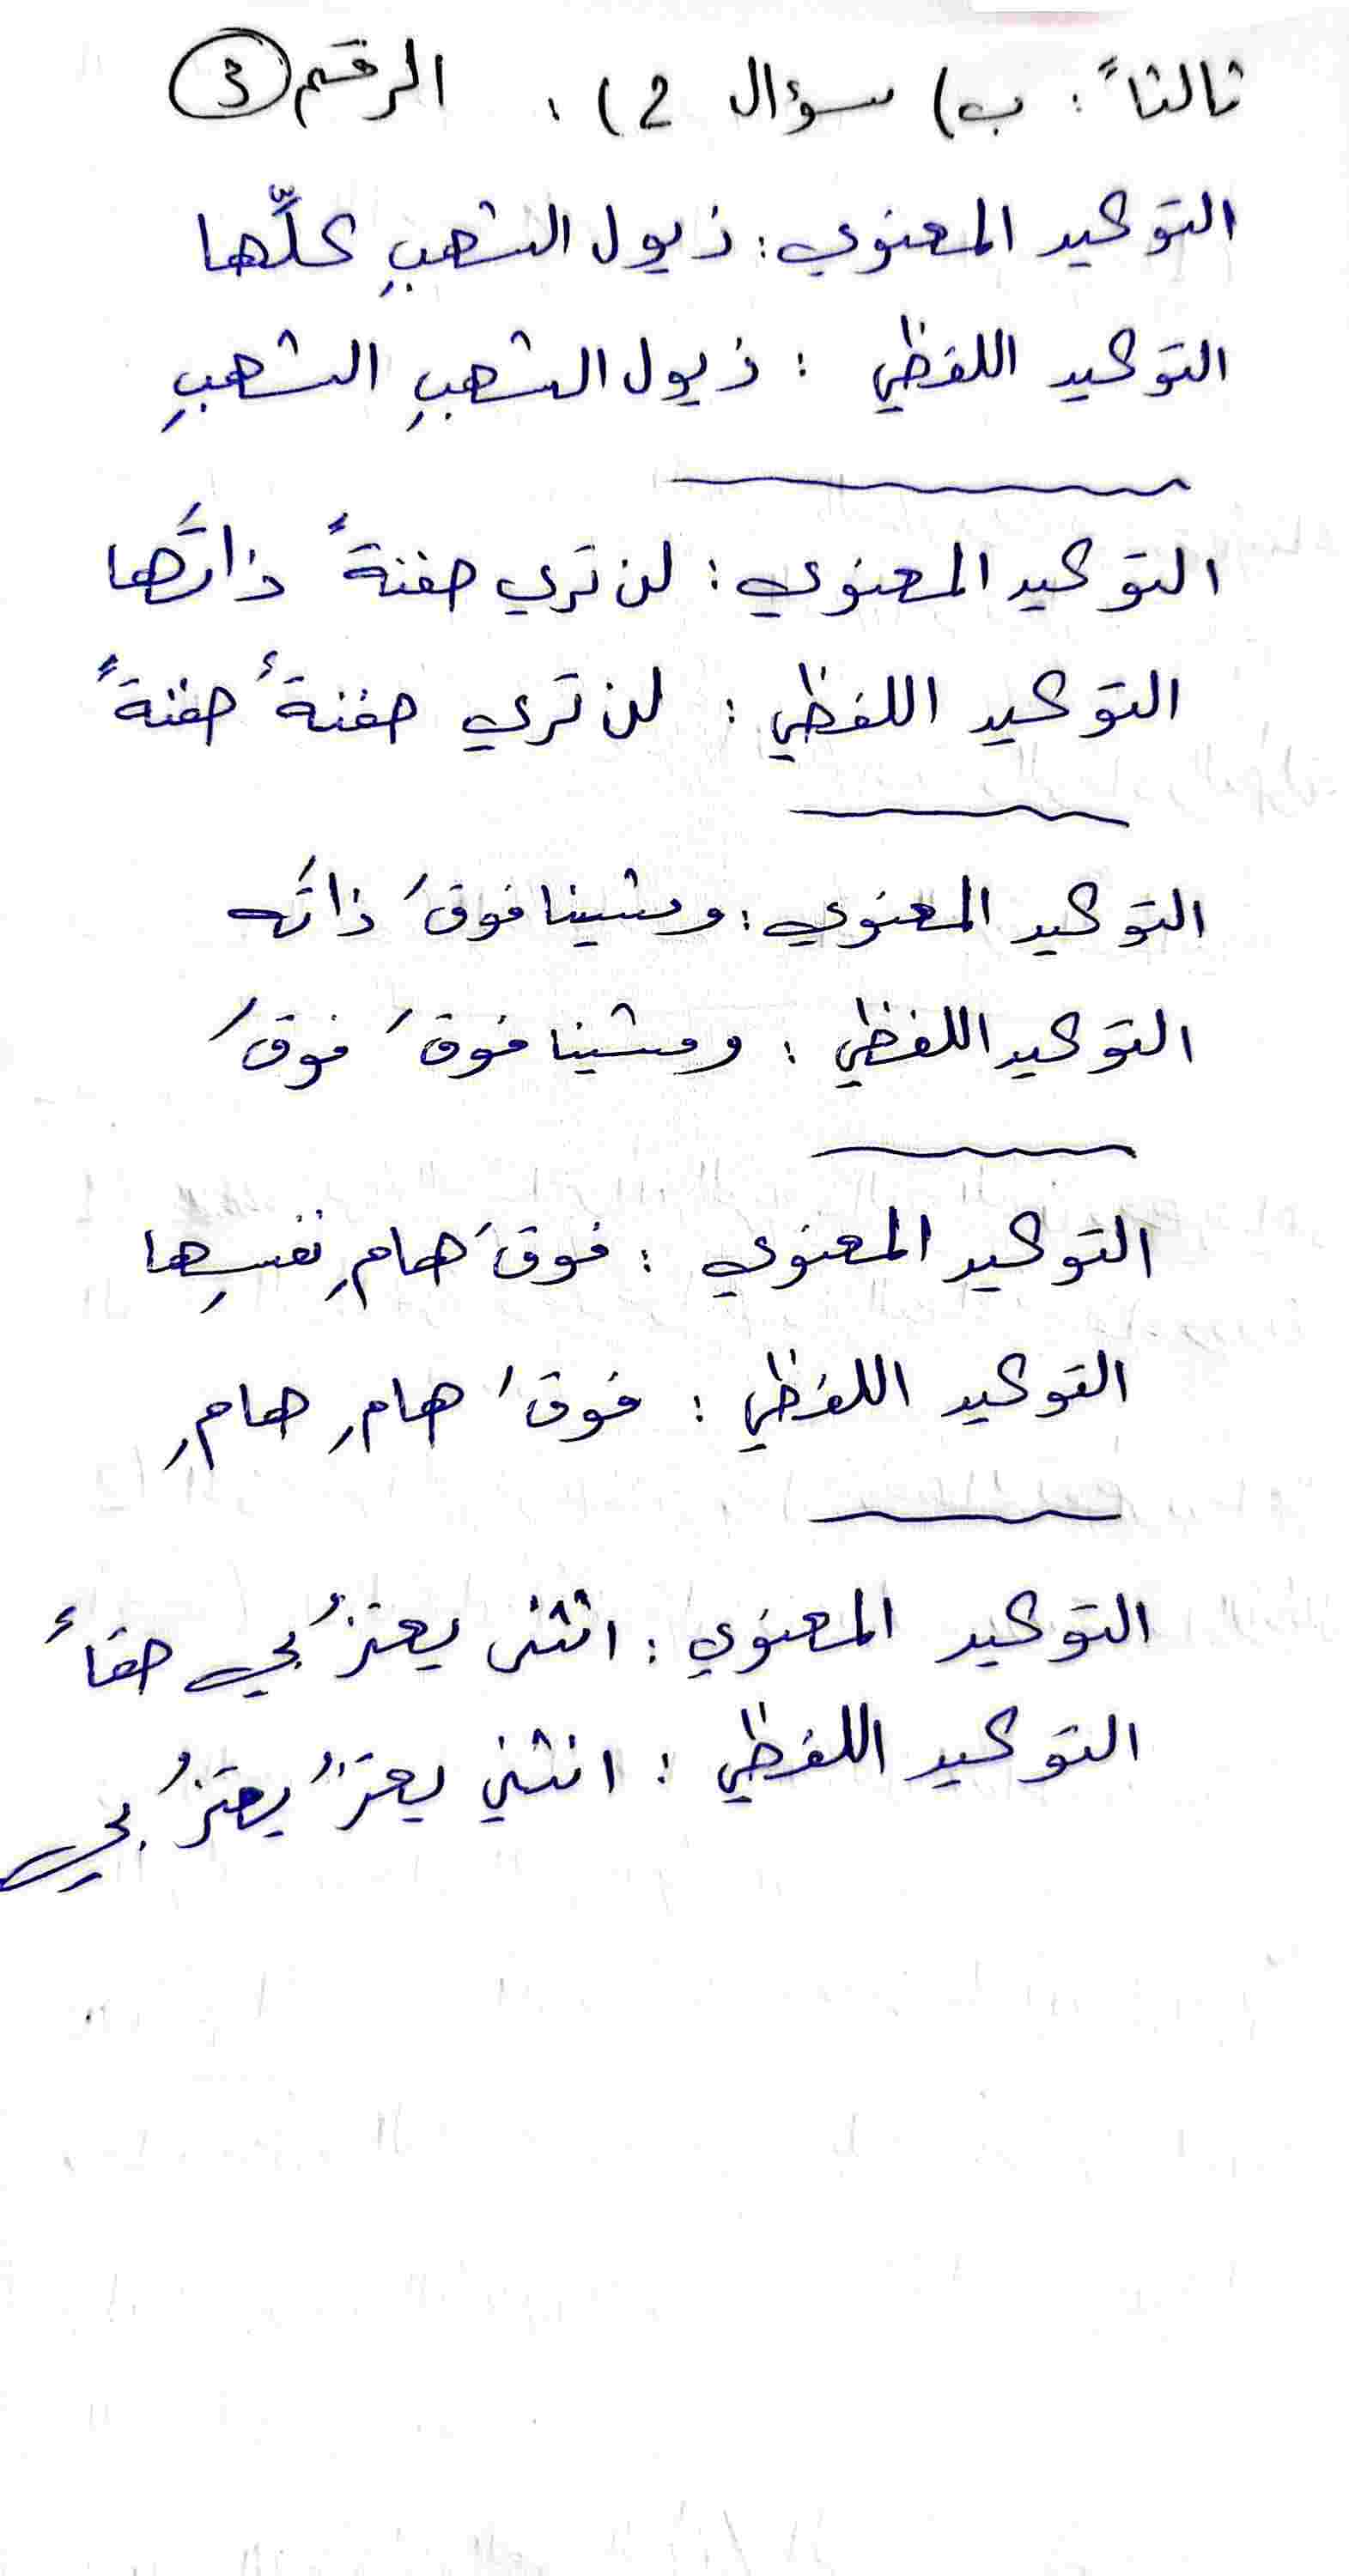 ثالثاً : ب) سؤال 2) : الرقم 3
التوكيد المعنوي : ذيول الشهبِ كلِّها
التوكيد اللفظي : ذيول الشهبِ الشهبِ
التوكيد المعنوي : لن تري حفنةً ذاتَها
التوكيد اللفظي : لن تري حفنةً حفنةً
التوكيد المعنوي : ومشينا فوقَ ذاتَه
التوكيد اللفظي : ومشينا فوقَ فوقَ
التوكيد المعنوي : فوقَ هامِ نفسِها
التوكيد اللفظي : فوقَ هامِ هامِ
التوكيد المعنوي : انثنى يعتزُ بي حقاً
التوكيد اللفظي : انثني يعتزُ يعتزُ بي